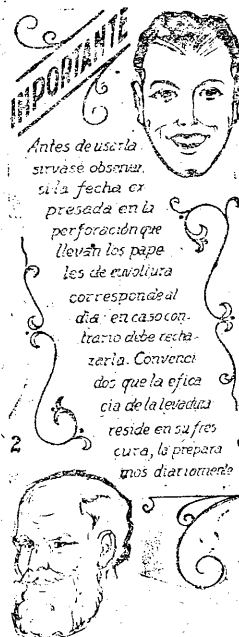 IMPORTANTE
Antes de usarla
sirvase observar,
si la fecha ex
presada en la
perforación que
llevan los pape
les de envoltura
corresponde al
dia, en caso con-
trario debe recha-
zarla. Convenci
dos que la efica
cia de la levadura
reside en su fres
cura, la prepara
mos diariamente
2